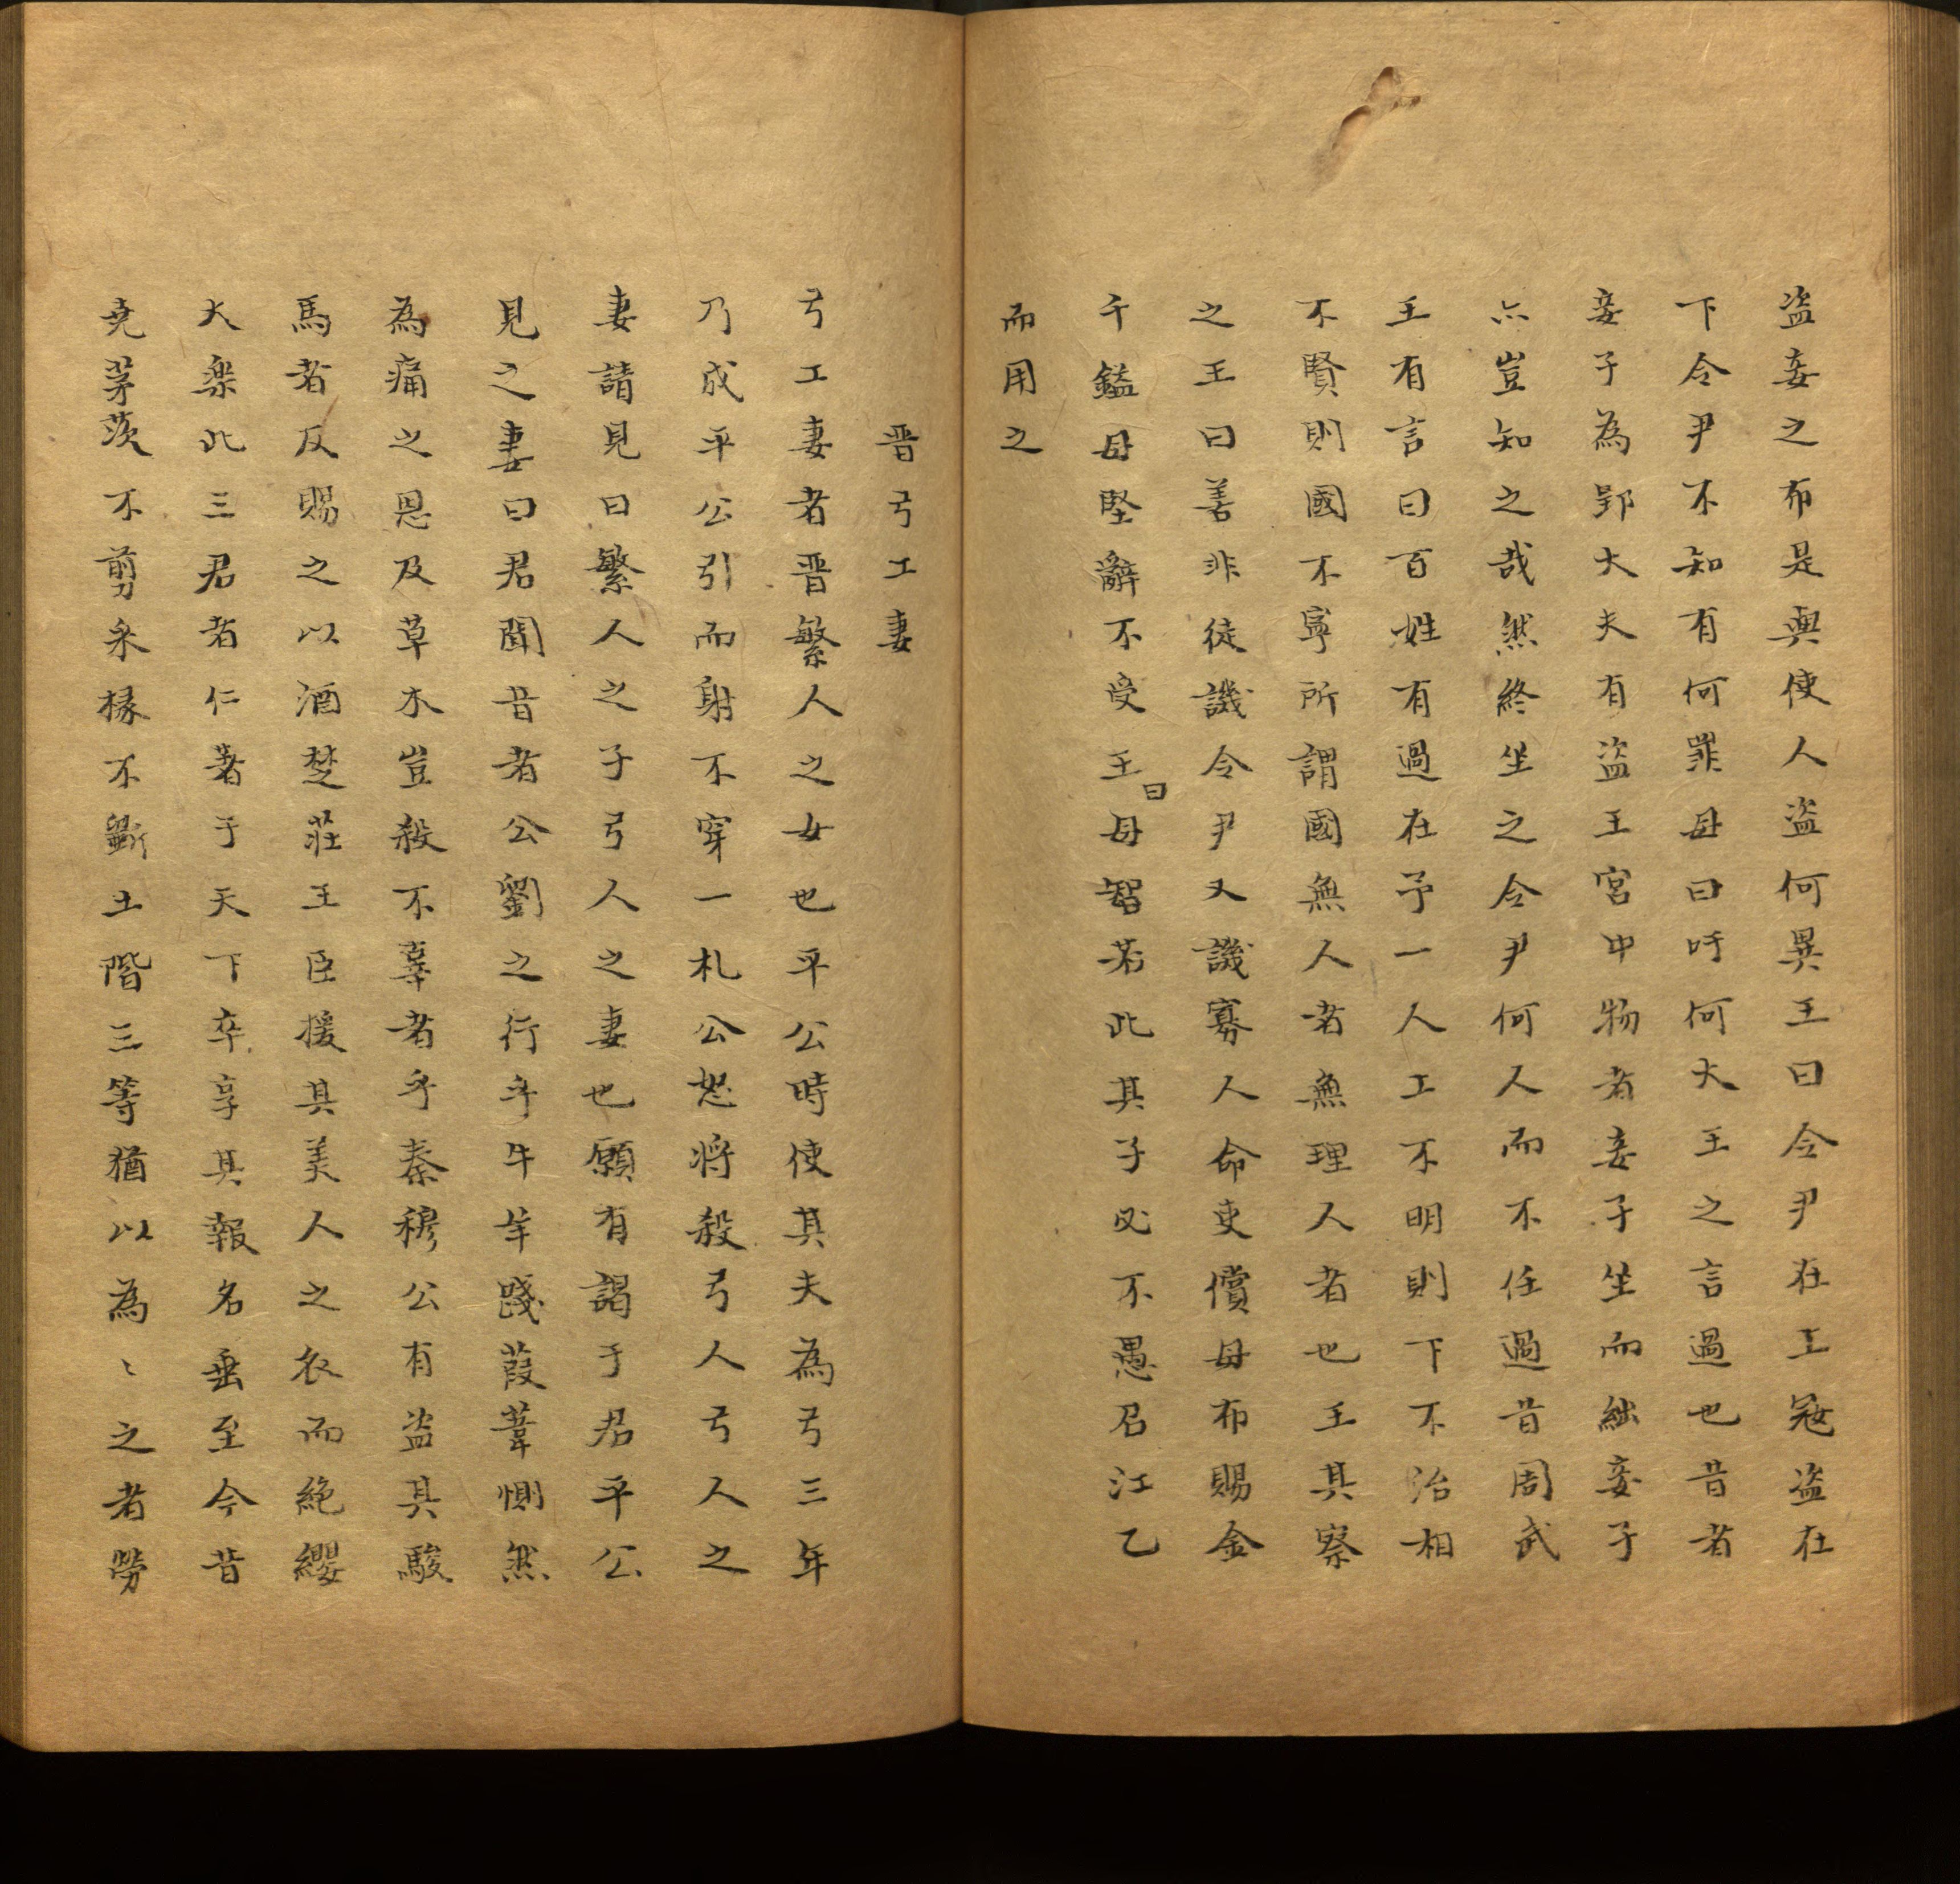 盗妾之布是與使人盗何異王曰令尹在上冦盗在
下令尹不知有何罪母曰吁何大王之言過也昔者
妾子為郢大夫有盗王宮中物者妾子坐而絀妾子
亦豈知之哉然終坐之令尹何人而不任過昔周武
王有言曰百姓有過在予一人上不明則下不治相
不賢則國不寧所謂國無人者無理人者也王其察
之王曰善非徒譏令尹又譏寡人命吏償母布賜金
千鎰母堅辭不受王曰母智若此其子必不愚召江乙
而用之
晋弓工妻
弓工妻者晋繁人之女也平公時使其夫為弓三年
乃成平公引而射不穿一札公怒将殺弓人弓人之
妻請見曰繁人之子弓人之妻也願有謁于君平公
見之妻曰君聞昔者公劉之行乎牛羊踐葭葦惻然
為痛之恩及草木豈殺不辜者乎秦穆公有盗其駿
馬者反賜之以酒楚莊王臣援其美人之衣而絶纓
大樂此三君者仁著于天下卒享其報名垂至今昔
尭茅茨不剪采椽不斲土階三等猶以為〻之者勞